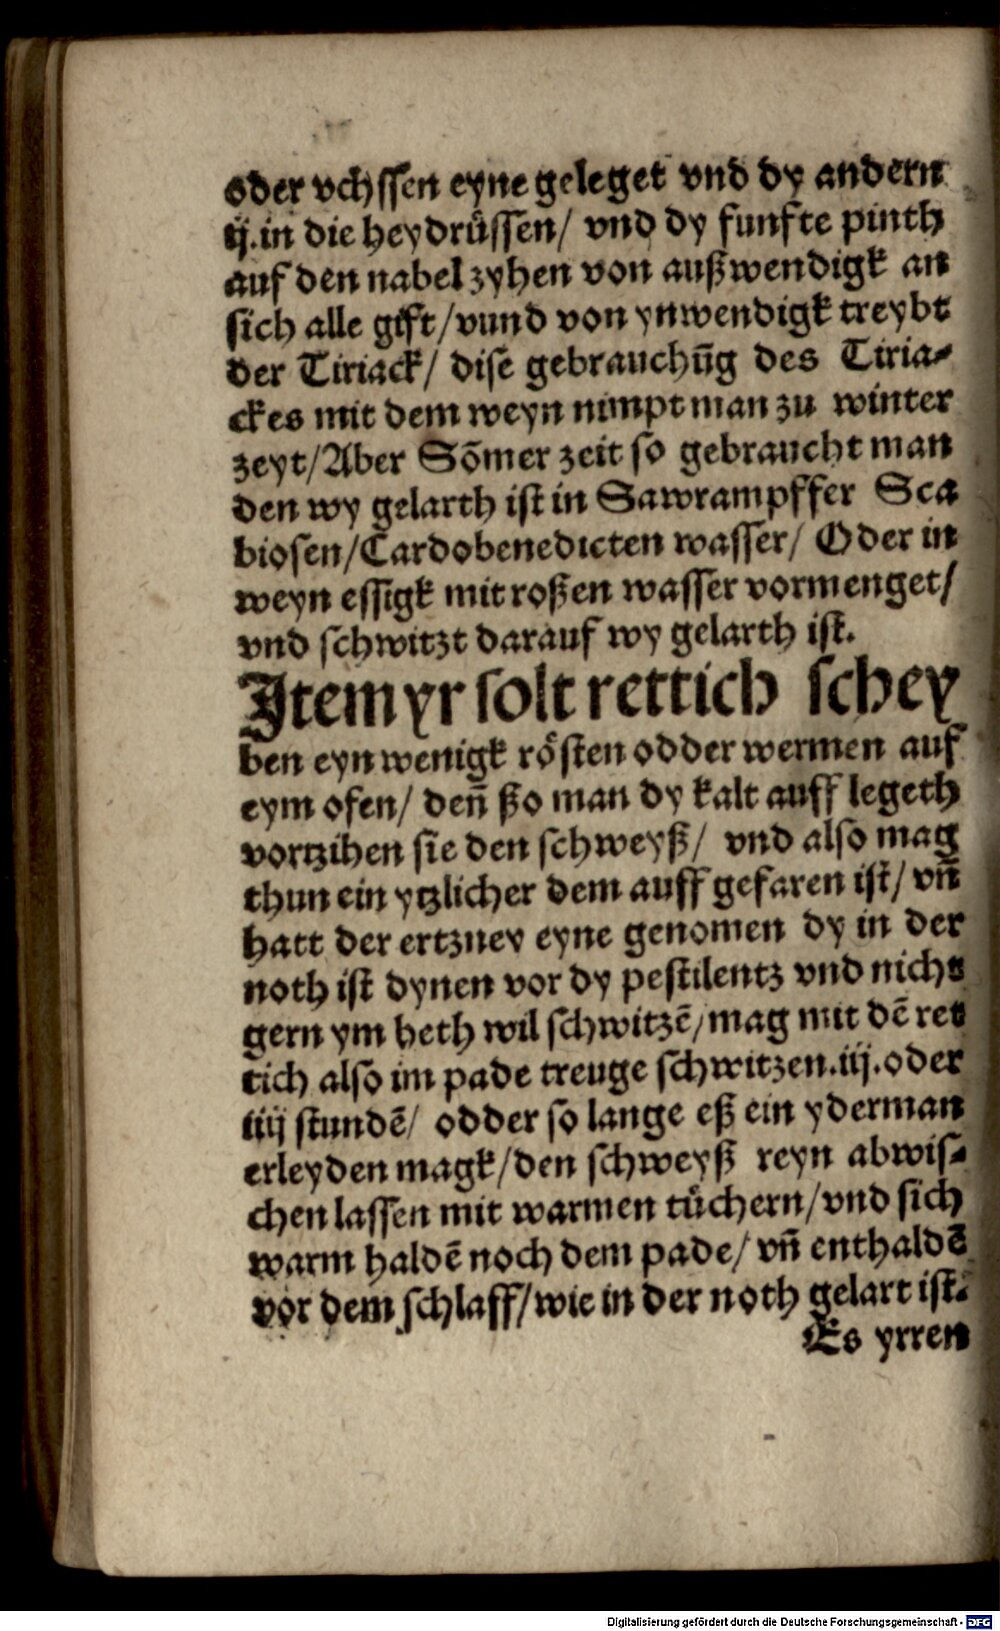 oder vchssen eyne geleget vnd dy andern
ij.in die heydrüssen/ vnd dy funfte pinth
auf den nabel zyhen von außwendigk an
sich alle gift/vund von ynwendigk treybt
der Tiriack/ dise gebrauchūg des Tiria⸗
ckes mit dem weyn nimpt man zu winter
zeyt/Aber Sōmer zeit so gebraucht man
den wy gelarth ist in Sawrampffer Sca
biosen/Cardobenedicten wasser/ Oder in
weyn essigk mit roßen wasser vormenget/
vnd schwitzt darauf wy gelarth ist.
Jtem yr solt rettich schey
ben eyn wenigk rösten odder wermen auf
eym ofen/ deñ ßo man dy kalt auff legeth
vortzihen sie den schweyß/ vnd also mag
thun ein ytzlicher dem auff gefaren ist/ vñ
hatt der ertzney eyne genomen dy in der
noth ist dynen vor dy pestilentz vnd nicht
gern ym beth wil schwitzē/mag mit dē ret
tich also im pade treuge schwitzen.iij.oder
iiij stundē/ odder so lange eß ein yderman
erleyden magk/den schweyß reyn abwis⸗
chen lassen mit warmen tüchern/vnd sich
warm haldē noch dem pade/ vñ enthaldē
vor dem schlaff/wie in der noth gelart ist.
Es yrren
Digitalisierung gefördert durch die Deutsche Forschungsgemeinschaft - DFG